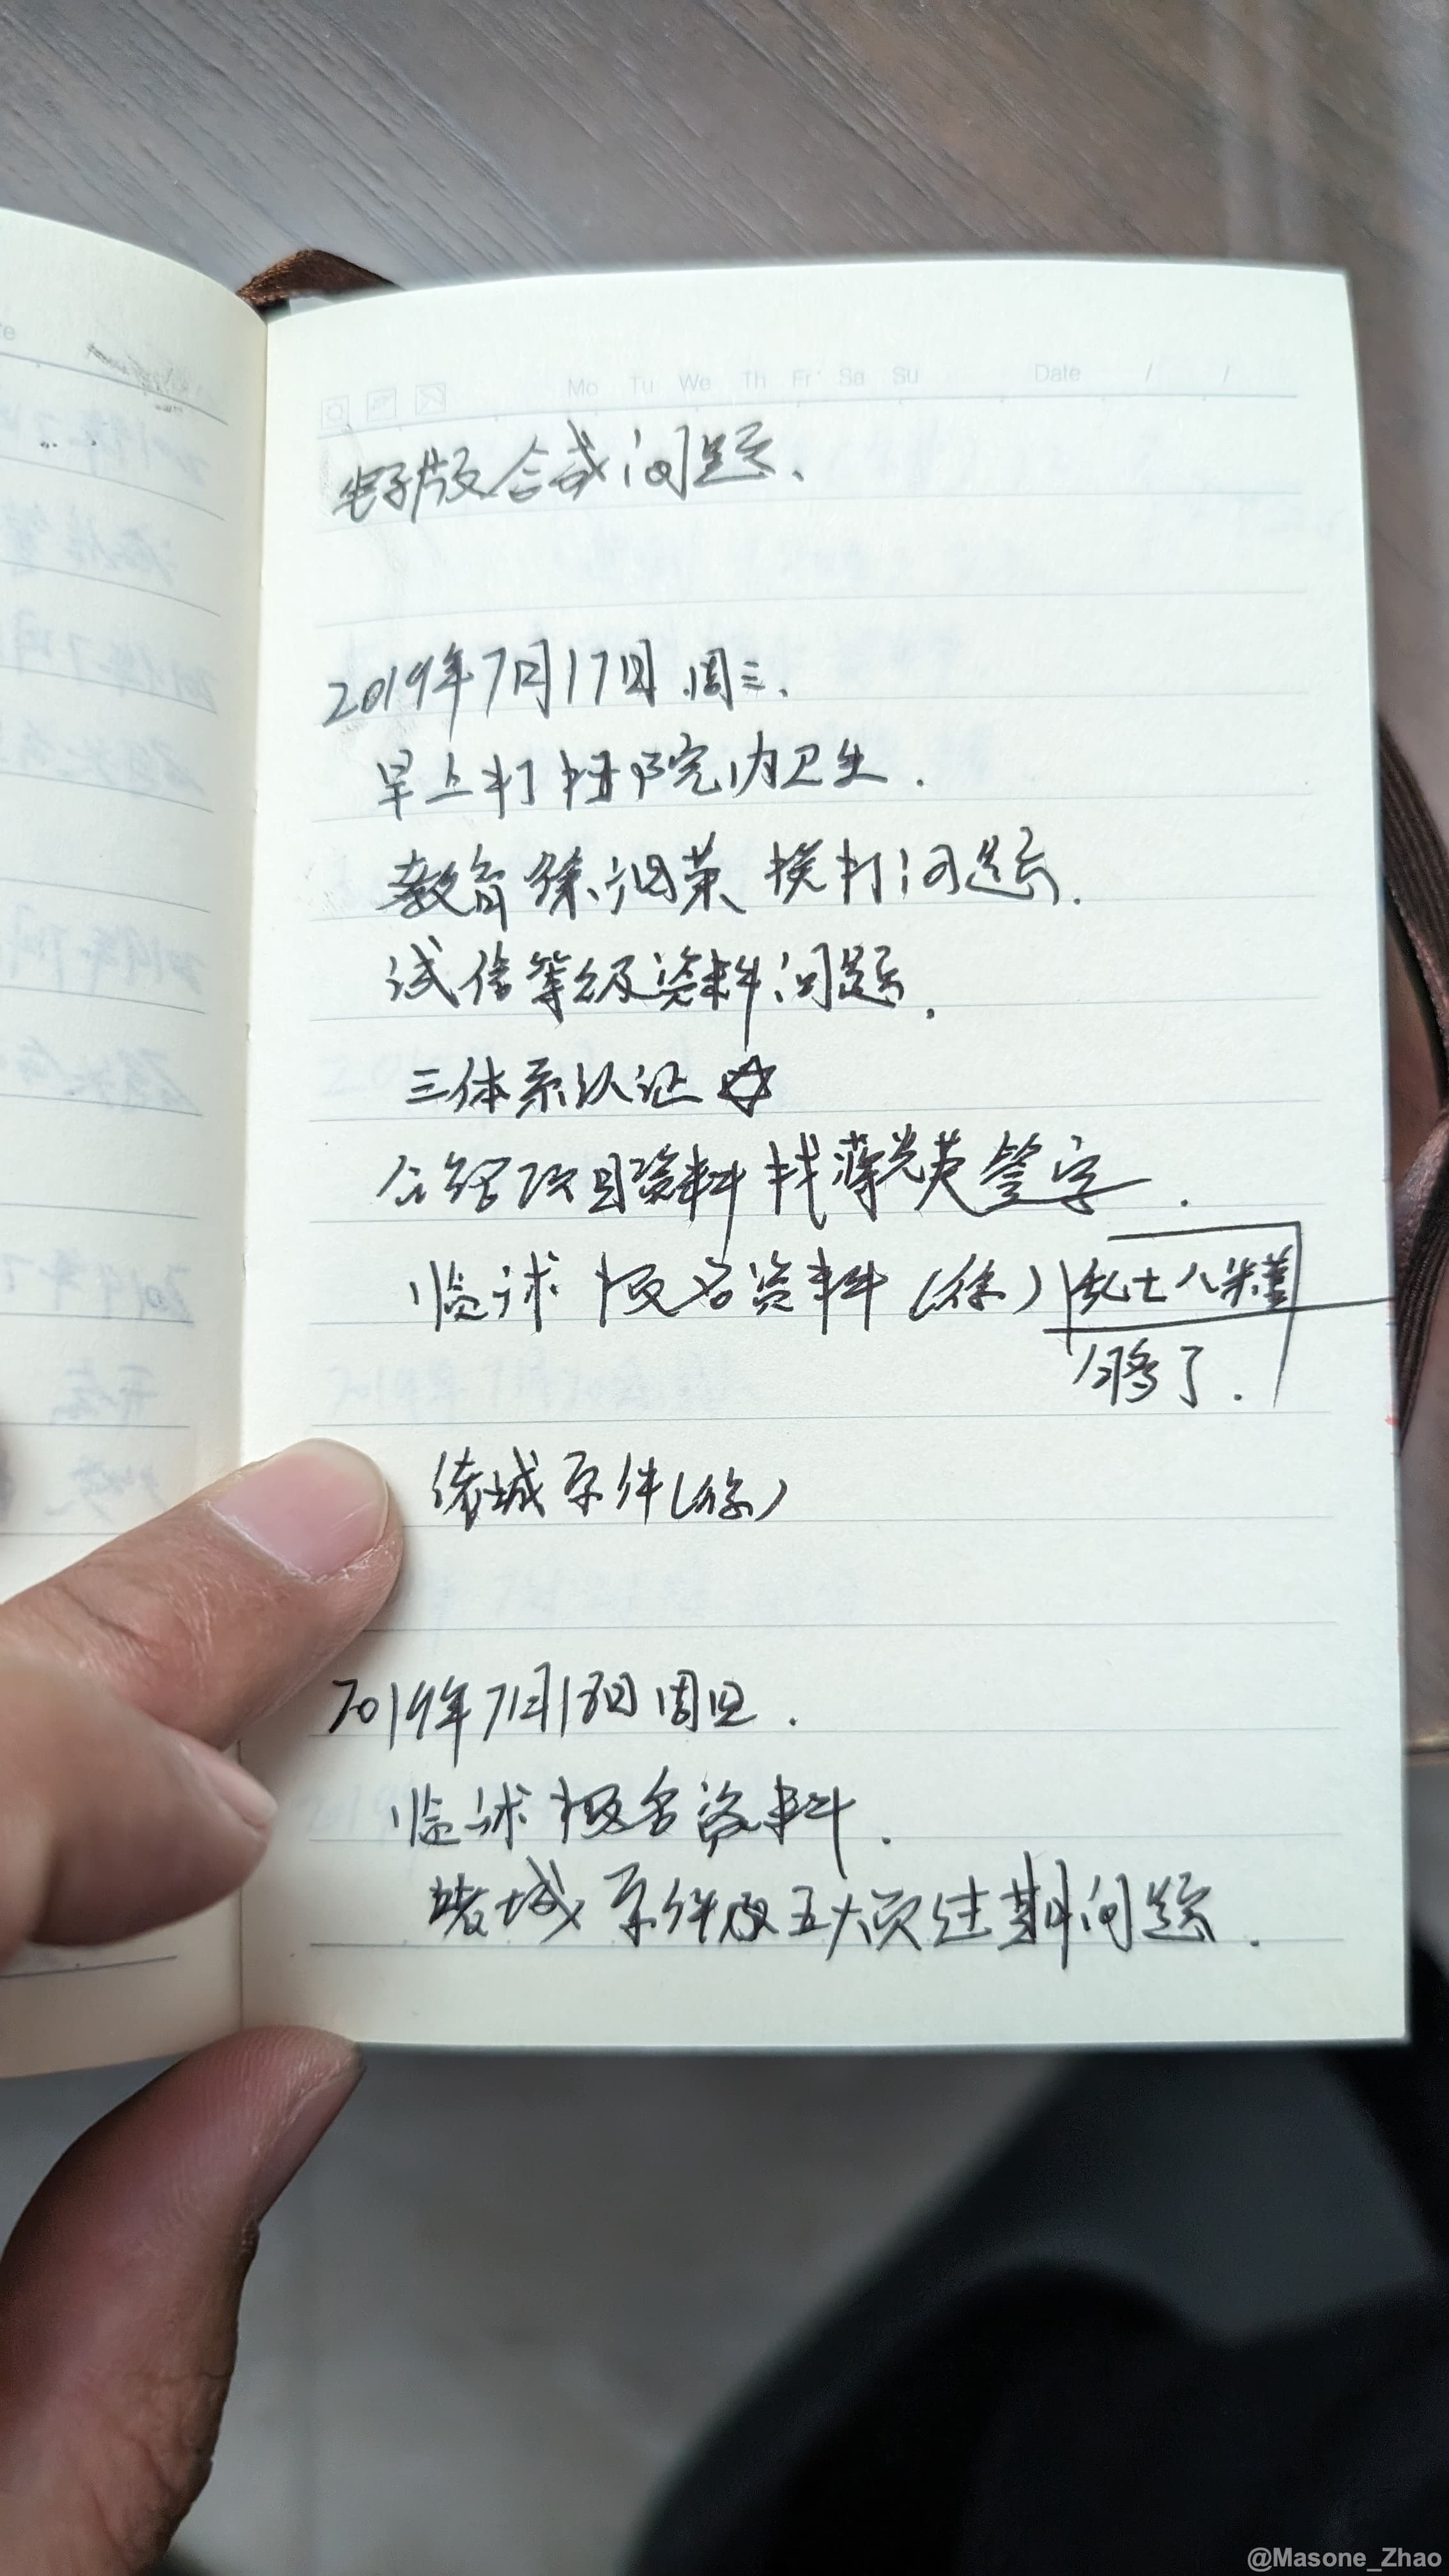 Mo Tu We Th Fr Sa Su Date / /
电子版合成问题、
2019年7月17日 周三.
早上打扫院内卫生.
教育 荣 问题.
试 信等级资料问题.
三体系认证☆
合 项目资料 找薛光英签字.
临沭 报名资料(徐)乱七八糟
够了.
诸城原件(徐)
2019年7月18日 周四.
临沭报名资料.
诸城原件及五大员 问题.
@Masone_Zhao